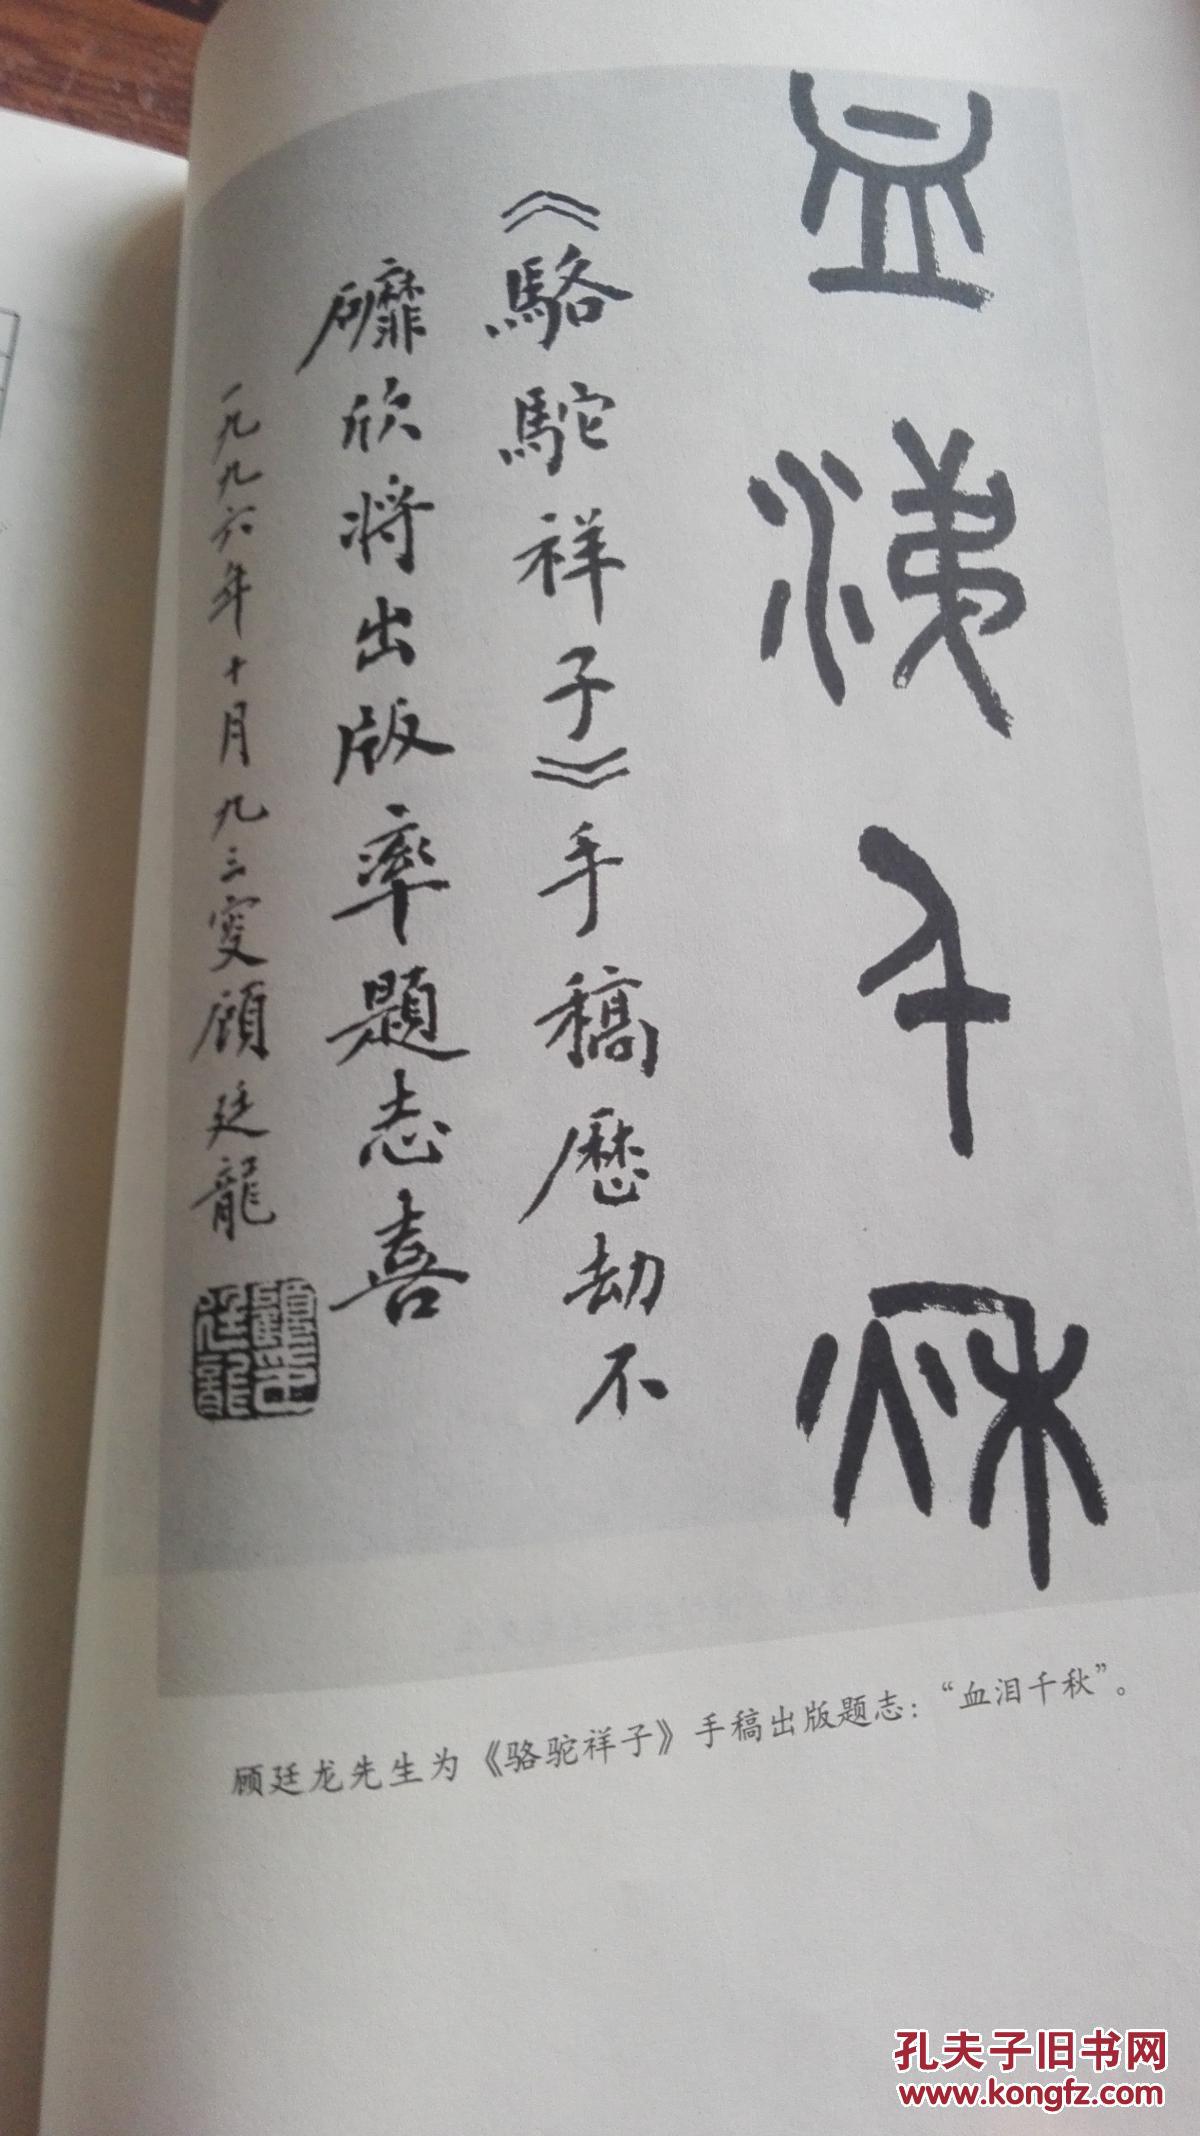 血涕千秋
《駱駝祥子》手稿歷劫不
䃺欣將出版率題志喜
一九九六年十月九三叟顧廷龍
顧印廷龍
顾廷龙先生为《骆驼祥子》手稿出版题志：“血泪千秋”。
孔夫子旧书网
www.kongfz.com